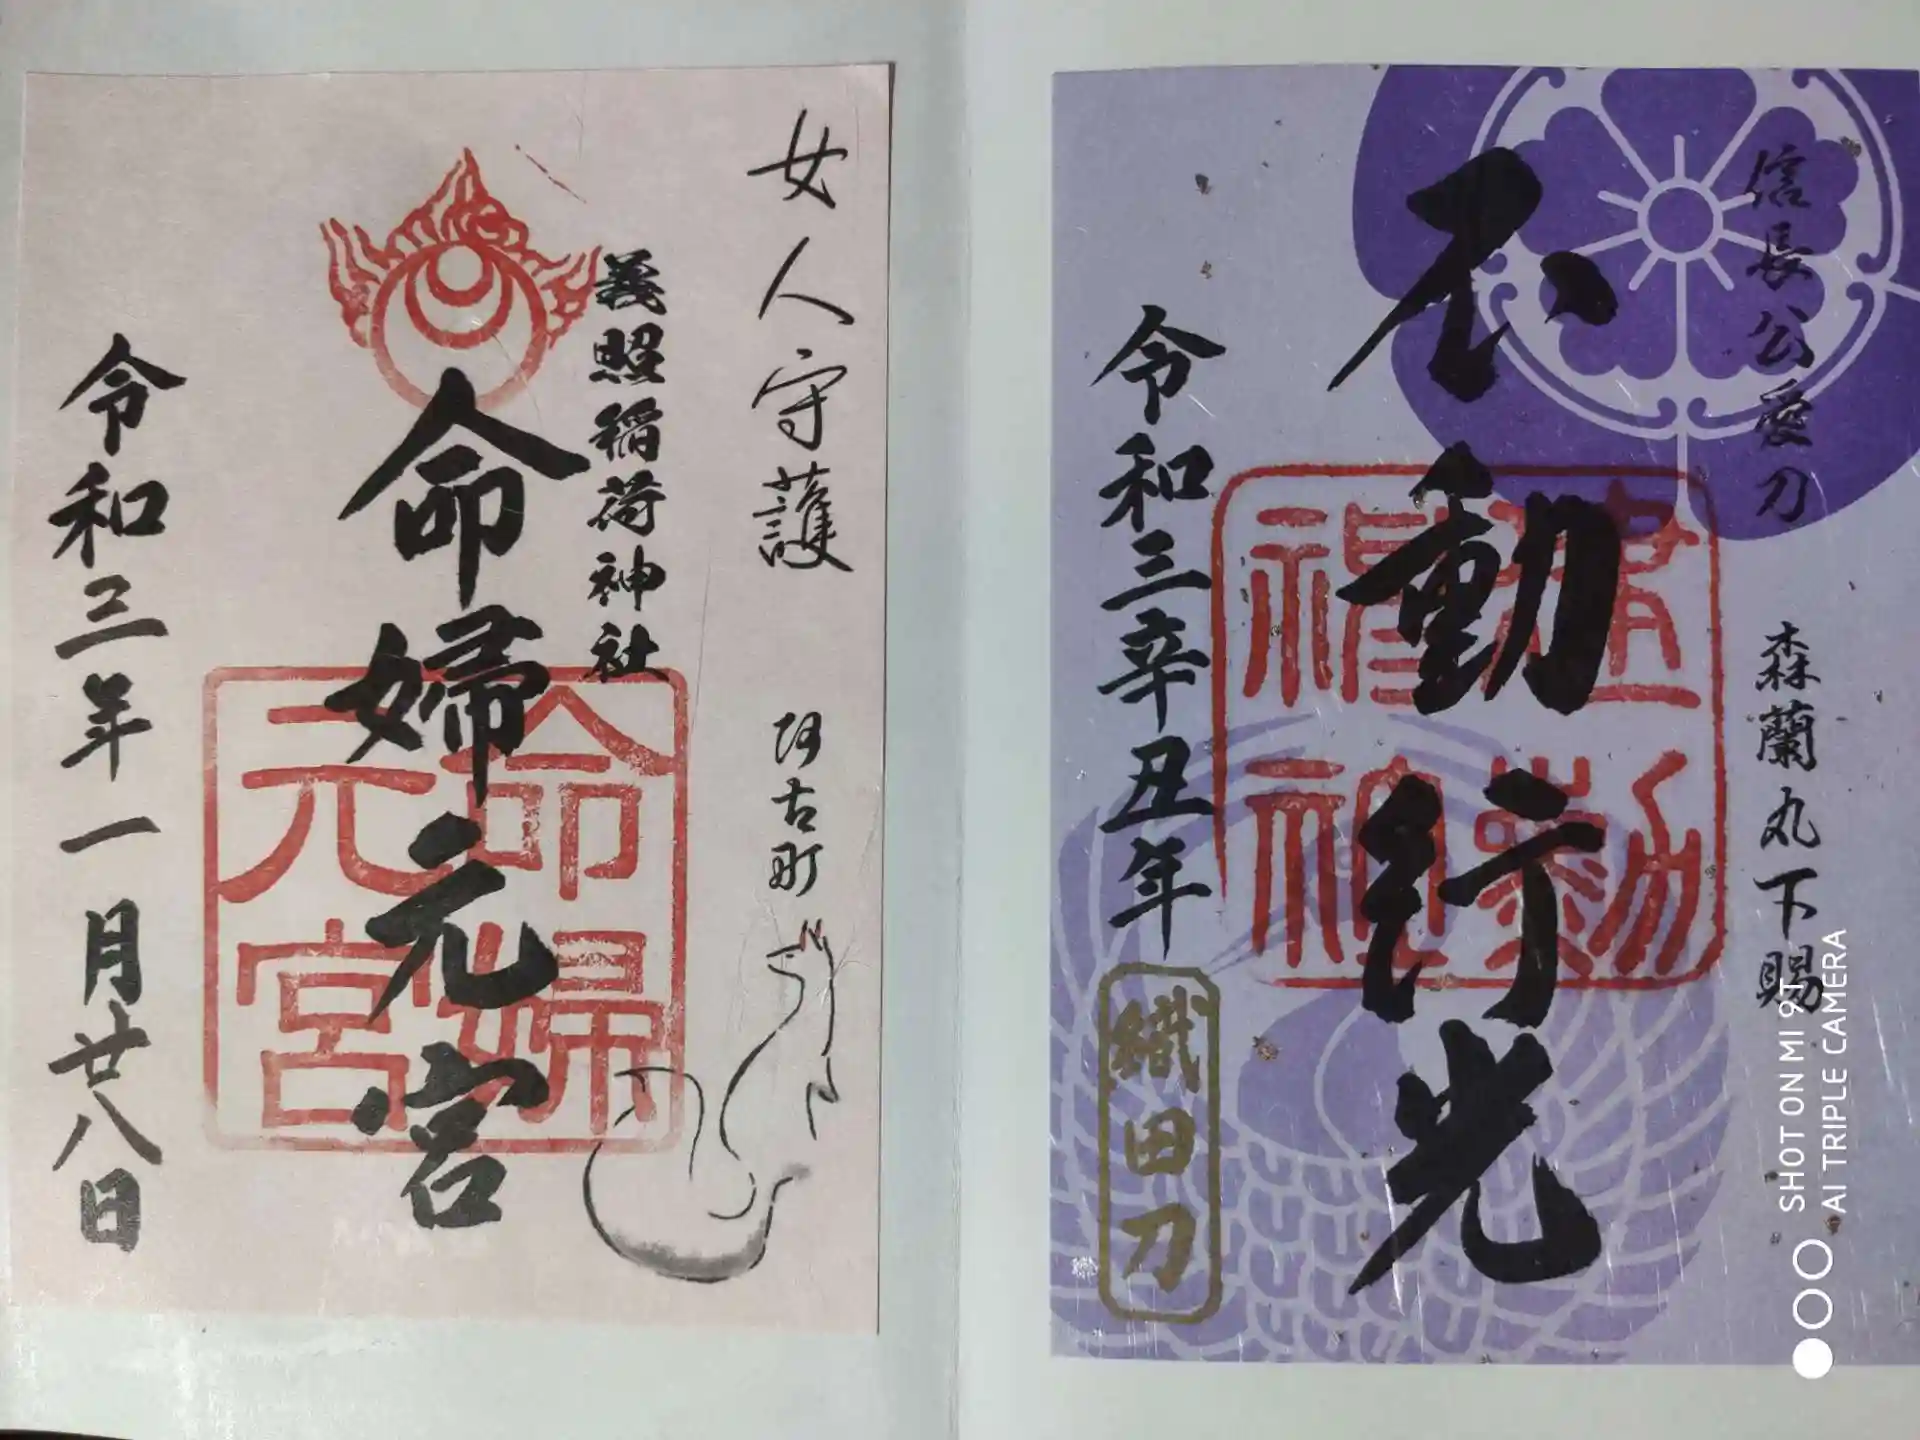 女人守護
阿古町
義照稲荷神社
命婦元宮
命婦元宮
令和三年一月廿八日
信長公愛刀
森蘭丸下賜
不動行光
建勲神社
令和三辛丑年
織田刀
SHOT ON MI 9T
AI TRIPLE CAMERA